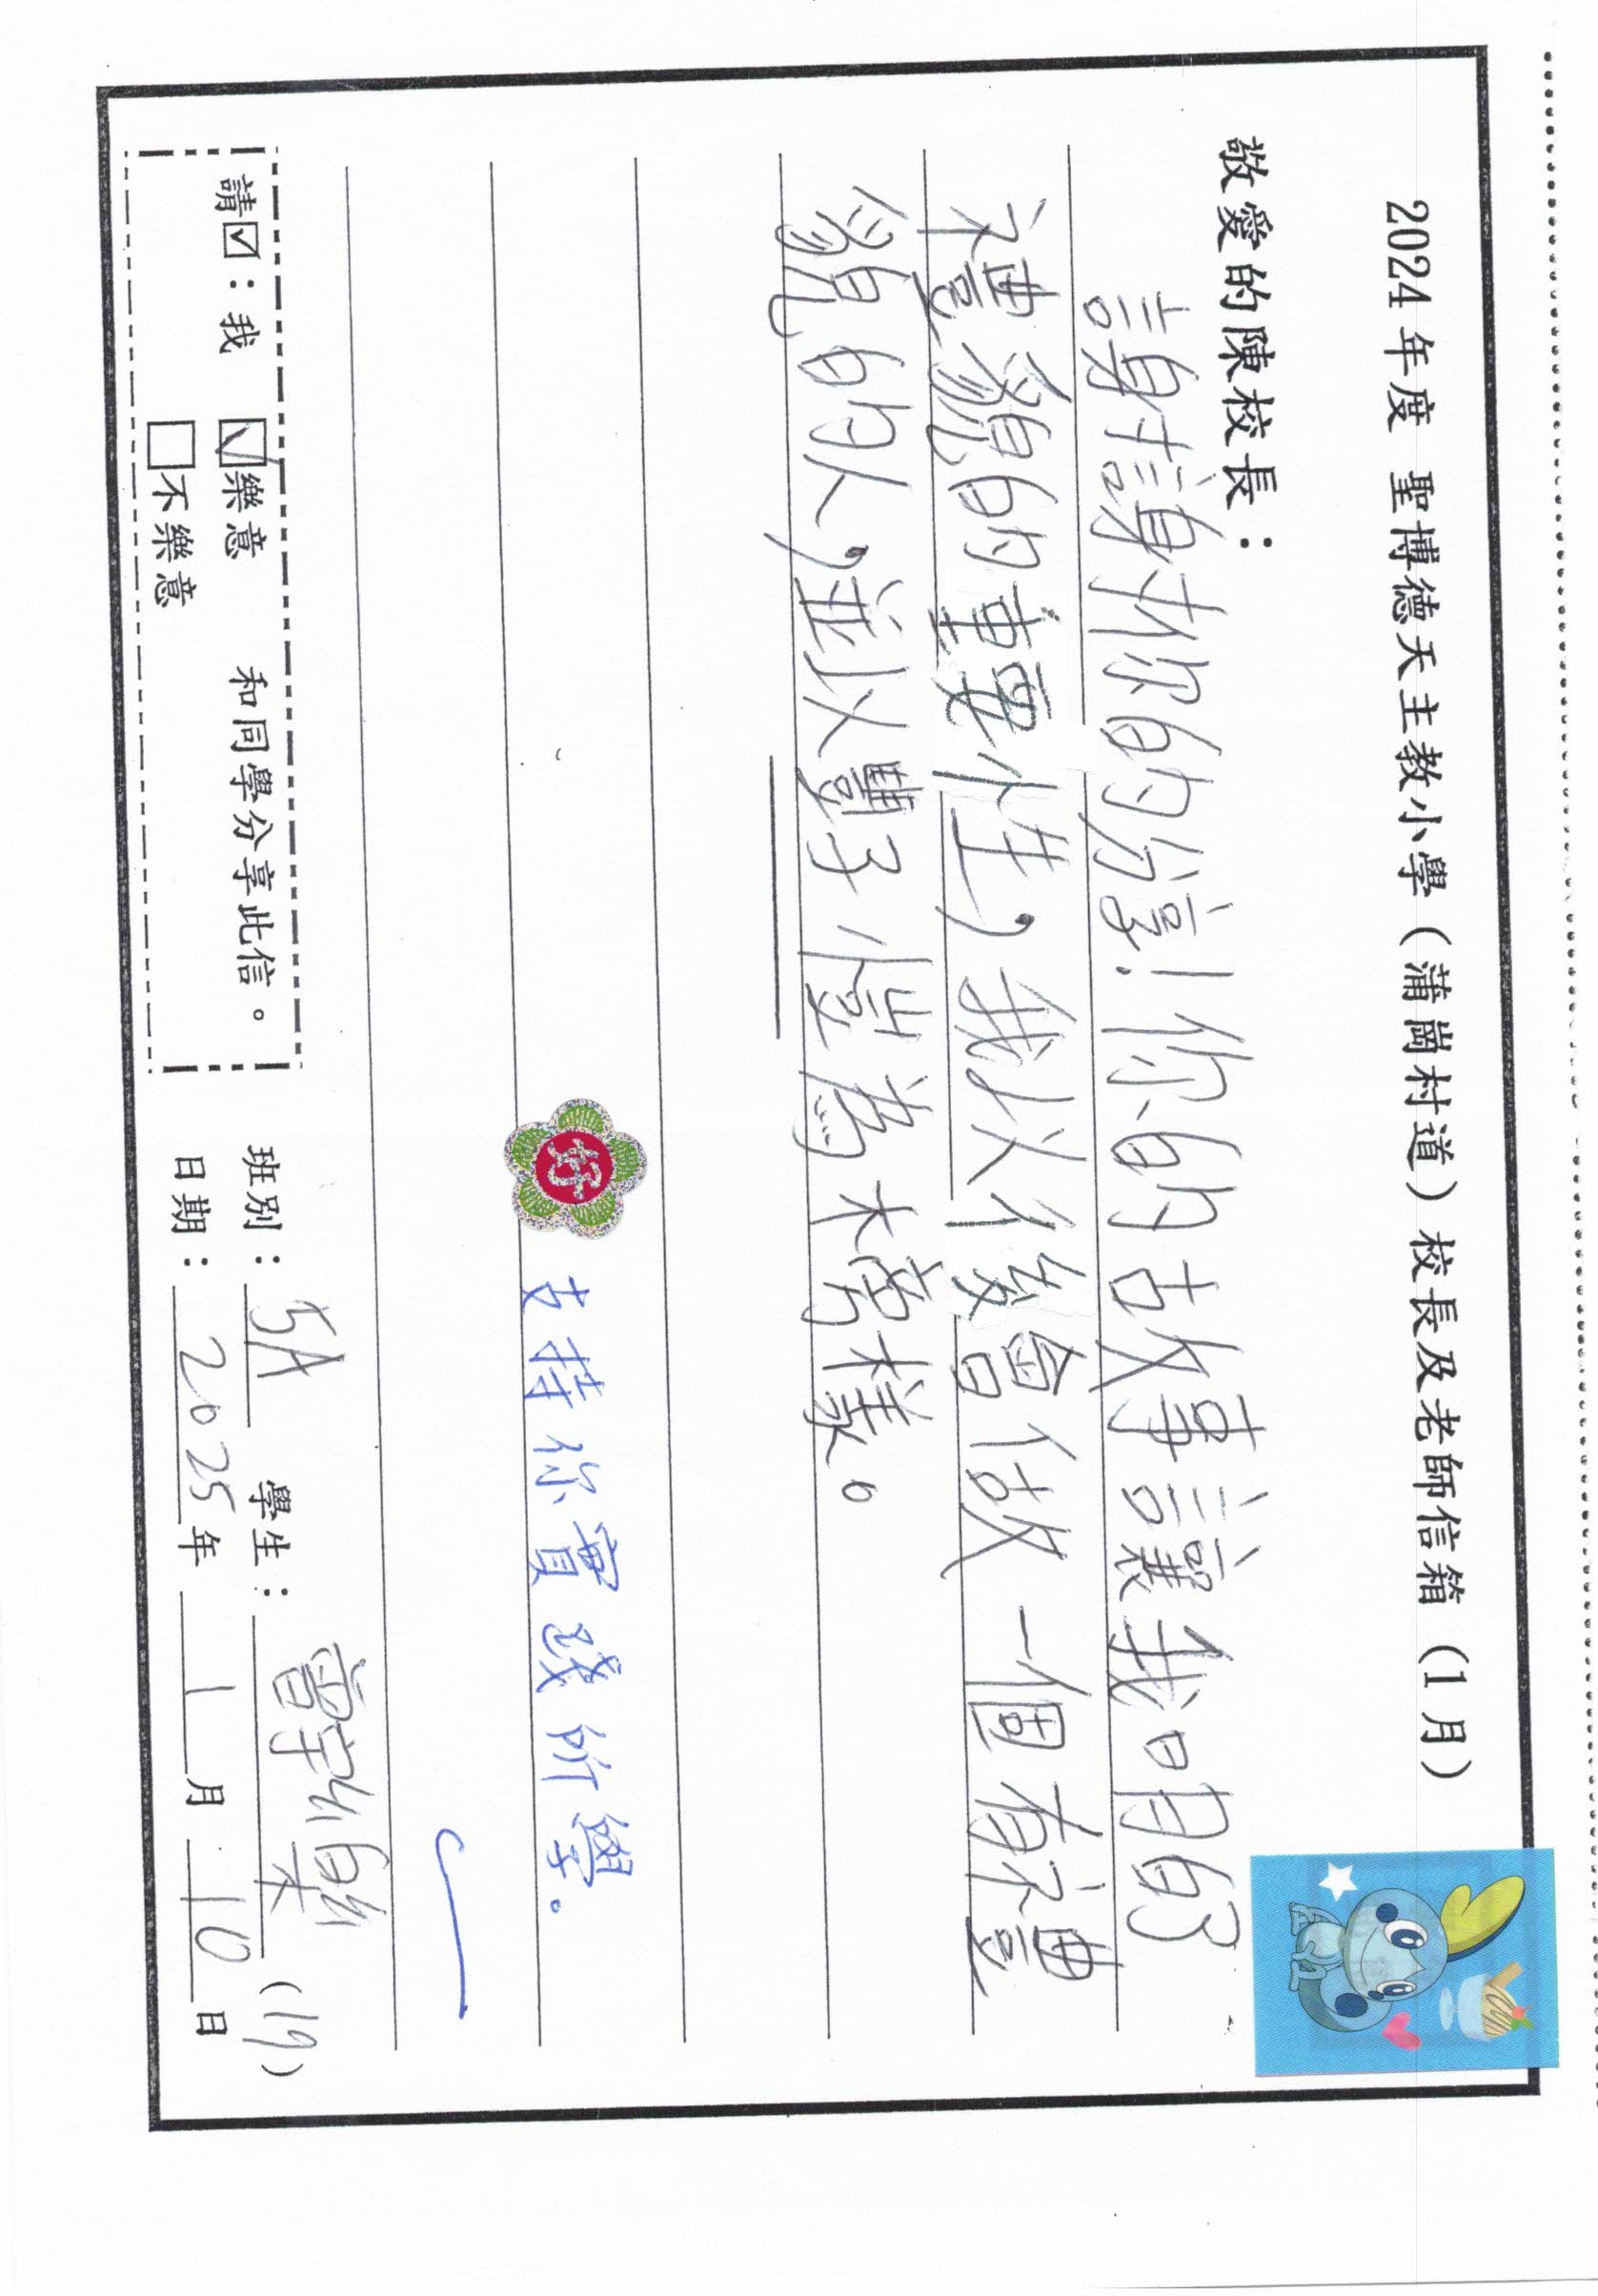 2024 年度 聖博德天主教小學（蒲崗村道）校長及老師信箱（1月）
敬愛的陳校長：
謝謝你的分享！你的故事讓我明白了
禮貌的重要性，我以後會做一個有禮
貌的人，並以豐子愷為榜樣。
好 支持你實踐所學。
請☑：我 ☑樂意 和同學分享此信。 班別：5A 學生： (19)
□不樂意 日期：2025年1月10日